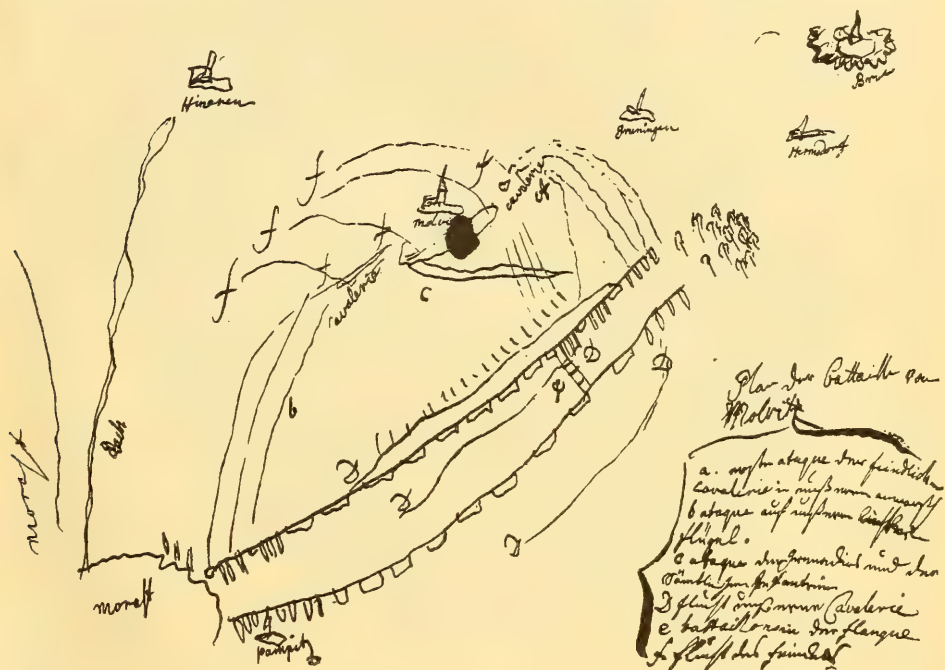 Hünern
Brüningen
Brig
Hermsdorf
f
f
f
f
Molwitz
Cavalerie
a
Cavalerie
c
b
Bach
morast
morast
D
e
D
D
D
D
Pampitz
Plan der Battaille von
Molwitz
a. erste ataque der feindlichen
Cavalerie in unseren
b ataque auf unseren
flügel.
c ataque der Grenadiers und der
sämtlichen Infanterie
D flucht unserer Cavalerie
e battaillons in der flanque
f. flucht des feindes